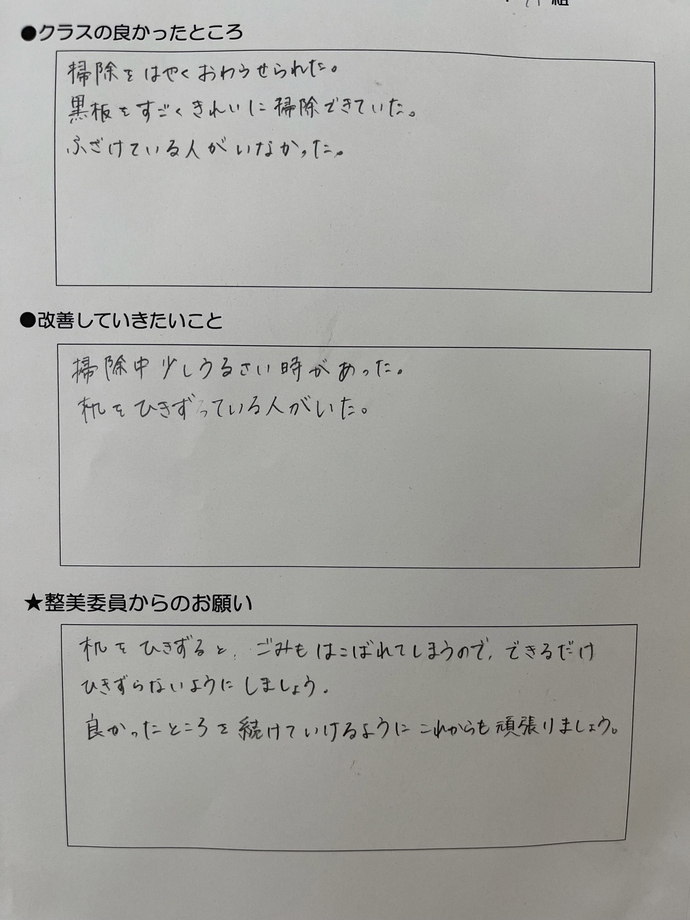 組
●クラスの良かったところ
掃除をはやくおわらせられた。
黒板をすごくきれいに掃除できていた。
ふざけている人がいなかった。
●改善していきたいこと
掃除中少しうるさい時があった。
机をひきずっている人がいた。
★整美委員からのお願い
机をひきずると、ごみもはこばれてしまうので、できるだけ
ひきずらないようにしましょう。
良かったところを続けていけるようにこれからも頑張りましょう。